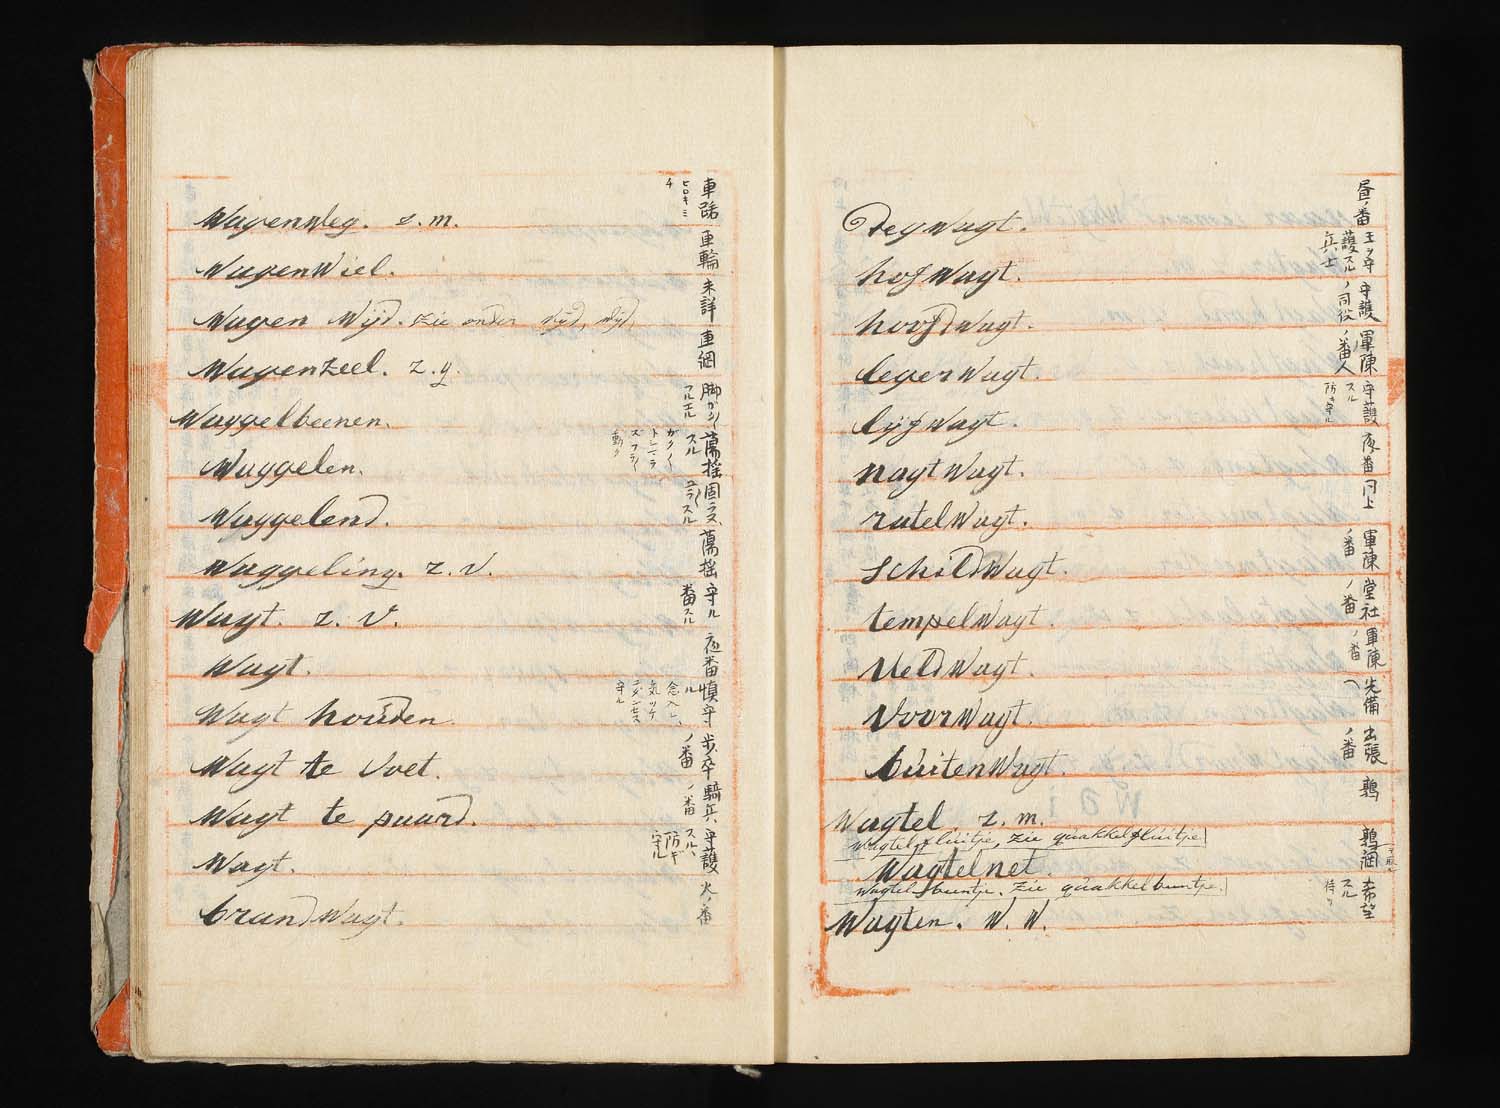 WagenWeg. z.m. 車路 ヒロキミチ
WagenWiel. 車輪
Wagen Wijd. zie onder wijd, wijd. 未詳
Wagenzeel. z.g. 車綱
Waggelbeenen. 脚ガ フルエル
Waggelen. 蕩揺スル
Waggelend.
Waggeling. z.v. 蕩揺
Wagt. z.v. 守ル 番スル
Wagt. 夜番
Wagt houden. 慎守ル 念入レ 気ツケ 守ル
Wagt te voet. 歩卒ノ番
Wagt te paard. 騎兵ノ番
Wagt. 守護スル 防ギ守ル
brandWagt. 火ノ番
DegWagt. 昼ノ番
hofWagt. 王ヲ守護スル兵士
hoofdWagt. 守護ノ同役
legerWagt. 軍陳ノ番人
lijfWagt. 守護スル 防キ守ル
nagtWagt. 夜番
ratelWagt. 同上
schildWagt. 軍陳ノ番
tempelWagt. 堂社ノ番
VeldWagt. 軍陳ノ番
VoorWagt. 先備
buitenWagt. 出張ノ番
Wagtel z.m. 鶉
Wagtelfluitje, zie quakkelfluitje.
Wagtelnet. 鶉網
Wagtelbuntje. zie quakkelbuntje.
Wagten. W.W. 希望スル 待ツ